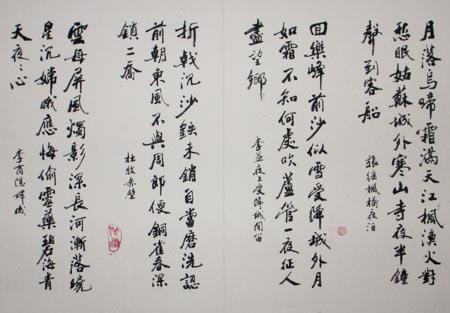 月落烏啼霜滿天江楓漁火對
愁眠姑蘇城外寒山寺夜半鐘
聲到客船 張繼楓橋夜泊
回樂峰前沙似雪受降城外月
如霜不知何處吹蘆管一夜征人
盡望鄉 李益夜上受降城聞笛
折戟沉沙鐵未銷自當磨洗認
前朝東風不與周郎便銅雀春深
鎖二喬 杜牧赤壁
雲母屏風燭影深長河漸落曉
星沉嫦娥應悔偷靈藥碧海青
天夜〻心 李商隱嫦娥